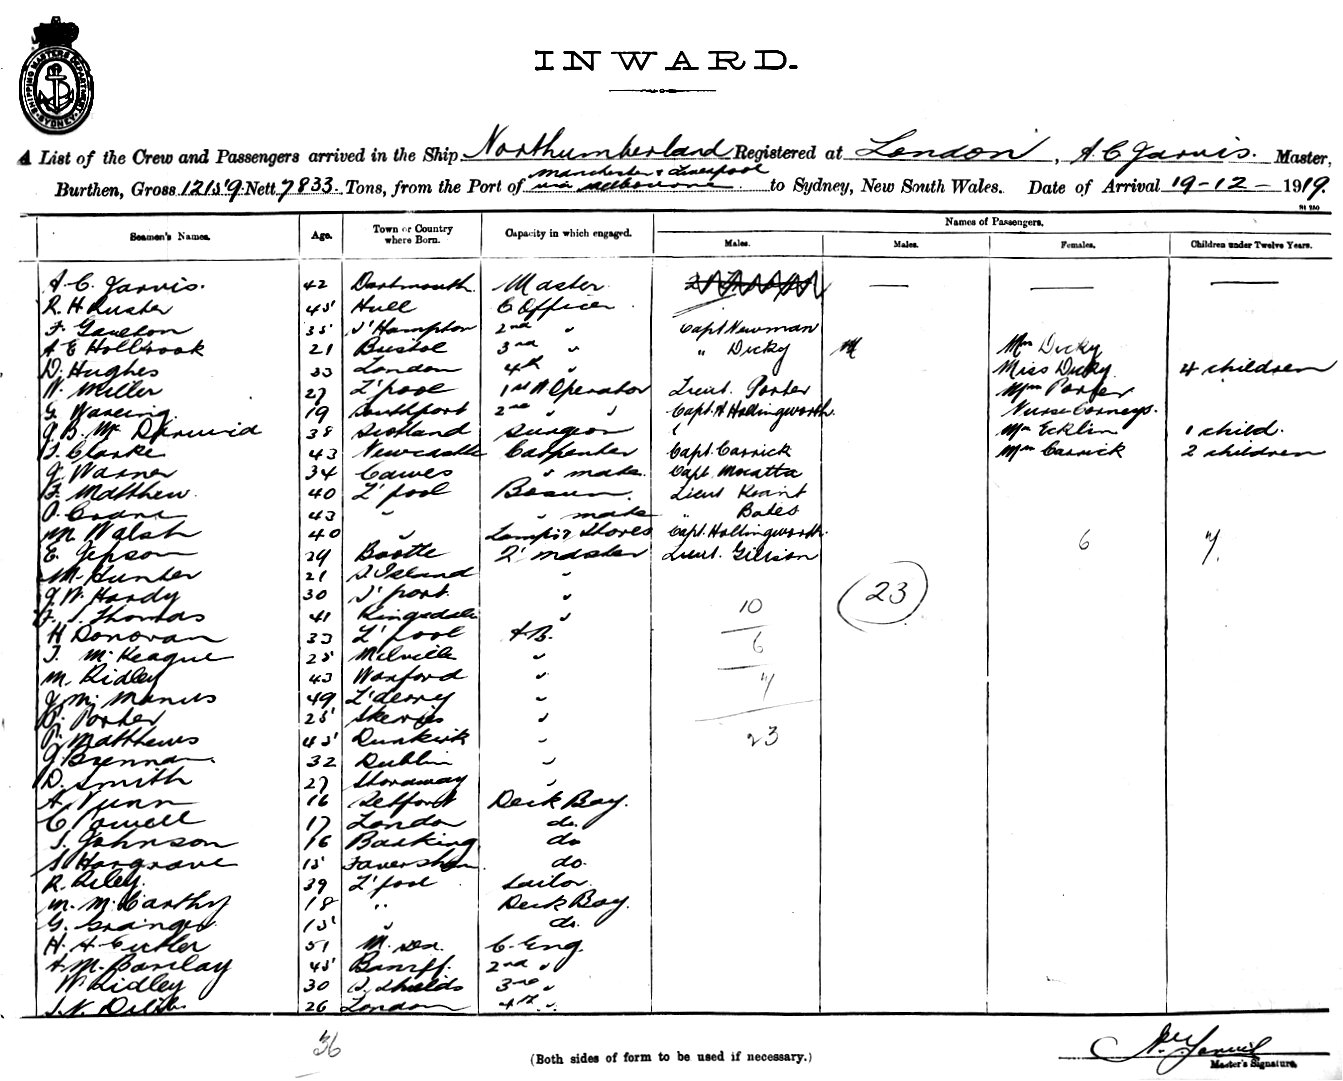 SHIPPING MASTERS DEPARTMENT SYDNEY
INWARD.
A List of the Crew and Passengers arrived in the Ship Northumberland Registered at London, A C Jarvis. Master,
Manchester & Liverpool
Burthen, Gross 12159 Nett 7833 Tons, from the Port of via Melbourne to Sydney, New South Wales. Date of Arrival 19-12-1919.
Seamen's Names. Age. Town or Country where Born. Capacity in which engaged. Names of Passengers.
Males. Males. Females. Children under Twelve Years.
A. C. Jarvis. 42 Dartmouth Master
R. H. 45 Hull C Officer
F. 35 S'Hampton 2nd " Capt Newman
A E Holbrook 21 Bristol 3rd " " Dicky Mrs Dicky
D. Hughes 33 London 4th " Miss Dicky 4 children
W. Miller 27 L'pool 1st W Operator Lieut. Porter Mrs Porter
G. Wareing 19 Southport 2nd " " Capt. A Hollingworth Nurse
38 Scotland Surgeon Mrs Ecklin 1 child.
Clarke 43 Newcastle Carpenter Capt. Carrick Mrs Carrick 2 children
J. Warner 34 Cowes " mate Capt.
F. Matthew. 40 L'pool Lieut
43 " " mate " Bates
M Walsh 40 " Capt. Hollingworth. 6 7
E. Jepson 29 Bootle Q'master Lieut.
M. Hunter 21 "
J. W. Hardy 30 S'port " 23
Thomas 41 " 10
H Donovan 33 L'pool A.B. 6
T. McKeague 25 Melville "
M. Ridley 43 " 7
J McManus 49 L'derry "
P. Porter 25 Skerries "
Matthews 45 Dunkirk " 23
J. Brennan 32 Dublin "
D. Smith 27 "
A. Nunn 16 Deck Boy.
C Powell 17 London do.
Johnson 16 Barking do
S Hargrave 15 Faversham do.
R. Riley. 39 L'pool Sailor.
M. McCarthy 18 " Deck Boy.
G. Grainger 15 " do.
H. A. Cutler 51 C. Eng.
A. M. Barclay 45 Banff. 2nd "
W Ridley 30 S. Shields 3rd "
26 London 4th "
36
(Both sides of form to be used if necessary.)
Master's Signature.